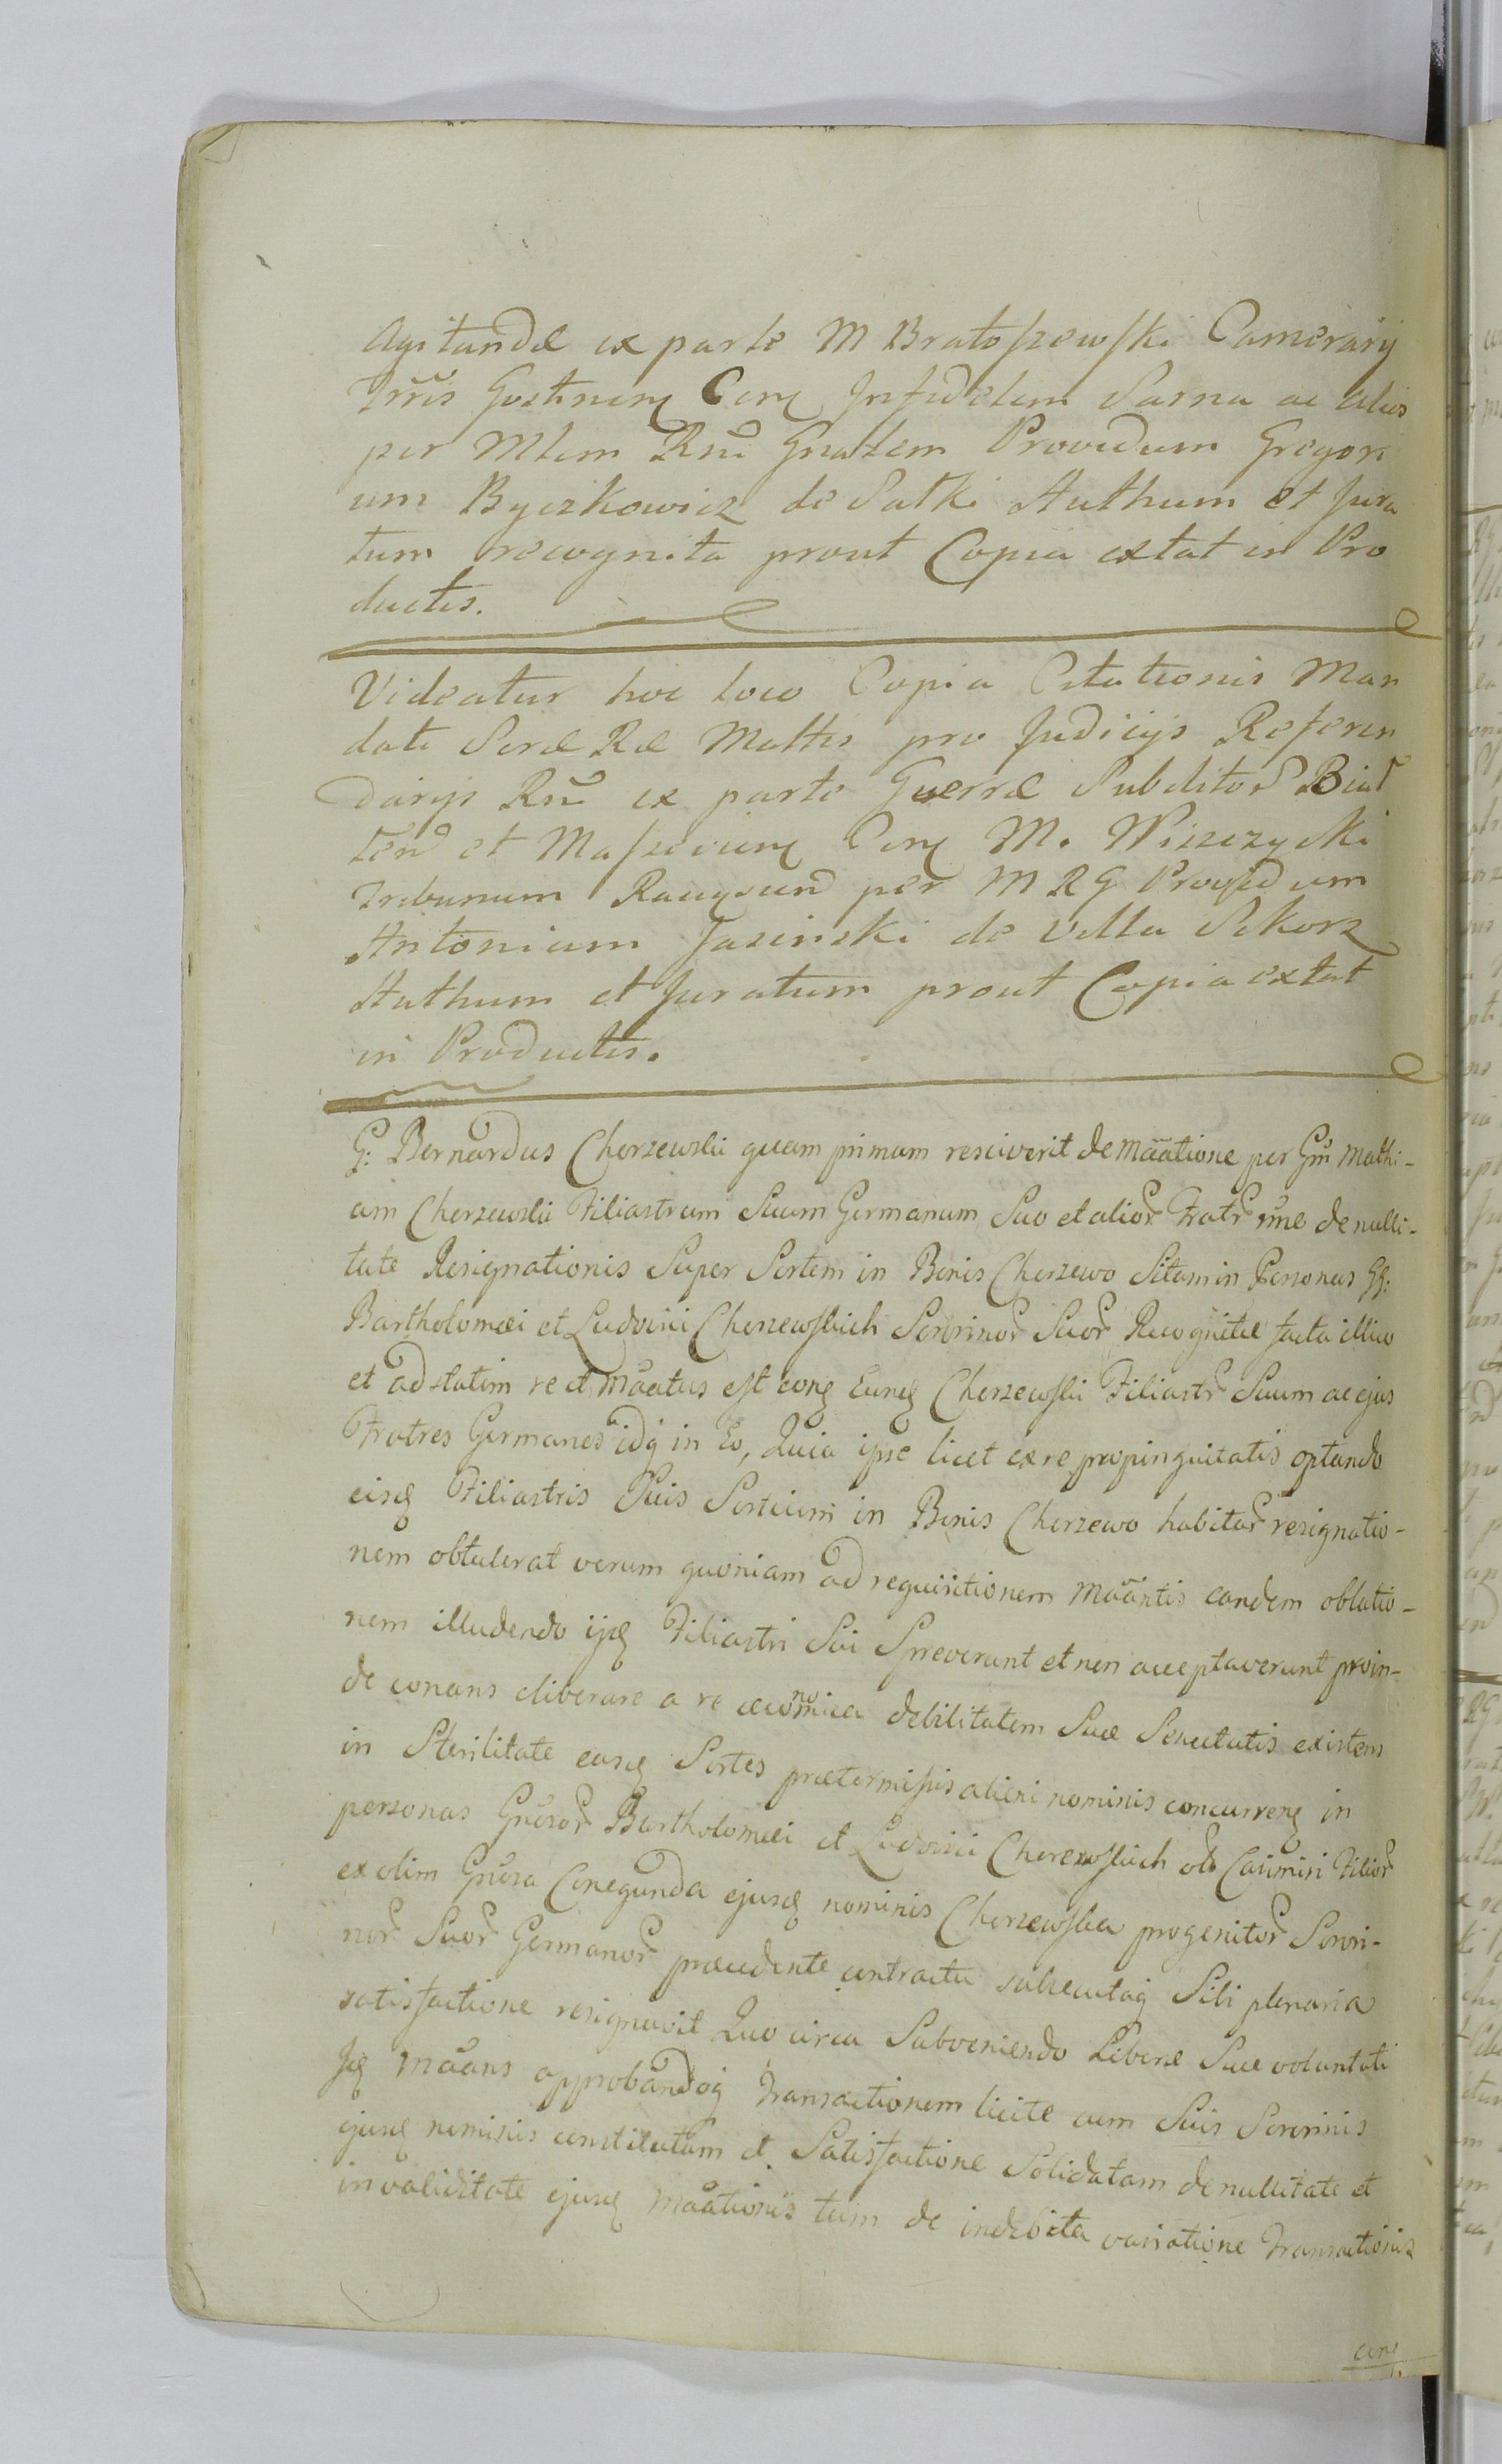 Agitandæ ex parte M Bratoszewski Camerarij
Trris Gostinen Con Infidelem Sarna ac alios
per Mlem Rni Gnalem Providum Gregori
um Byczkowicz de Satki Authum et Jura
tum recognita prout Copia extat in Pro
ductis.
Videatur hoc loco Copia Citationis Man
dati Seræ Ræ Mattis pro Judicijs Referen
darijs Rni ex parte Subditor
et M. Wiszczycki
Tribunum per M R G Providum
Antonium Jasinski de Villa Sikorz
Authum et Juratum prout Copia extat
in Productis.
G: Bernardus Chorzewski quam primum resciverit de mãatione per Gm Mathi-
am Chorzewski Filiastrum Suum Germanum Suo et alior Fratr nne de nulli-
tate Resignationis Super Sortem in Bonis Chorzewo Sitam in Personas GG:
Bartholomæi et Ludovici Chorzewskich Sororinor Suor Recognitæ facta illico
et ad statim re et mãatus est con Eund Chorzewski Filiastr Suum ac ejus
Fratres Germanos idq in Eo, Quia ipse licet ex re propinquitatis optando
eisd Filiastris Suis Sortium in Bonis Chorzewo habitar resignatio-
nem obtulerat verum quoniam ad requisitionem mãantis eandem oblatio-
nem illudendo ijd Filiastri Sui Spreverunt et non acceptaverunt proin-
de conans eliberare a re œconomica debilitatem Suæ Senectutis existens
in Sterilitate easd Sortes prætermissis alieni nominis concurren in
personas Gnosor Bartholomæi et Ludovici Chorzewskich olt Casimiri Filior
ex olim Gnosa Conegunda ejusd nominis Chorzewska progenitor Sorori-
nor Suor Germanor præcedente contractu subsecutaq Sibi plenaria
satisfactione resignavit Quo circa Subveniendo Liberæ Suæ voluntati
Jd mãans approbandoq Transactionem licite cum Suis Sororinis
ejusd nominis constitutam et Satisfactione Solidatam de nullitate et
invaliditate ejusd mãationis tum de indebita variatione Transactionis
con